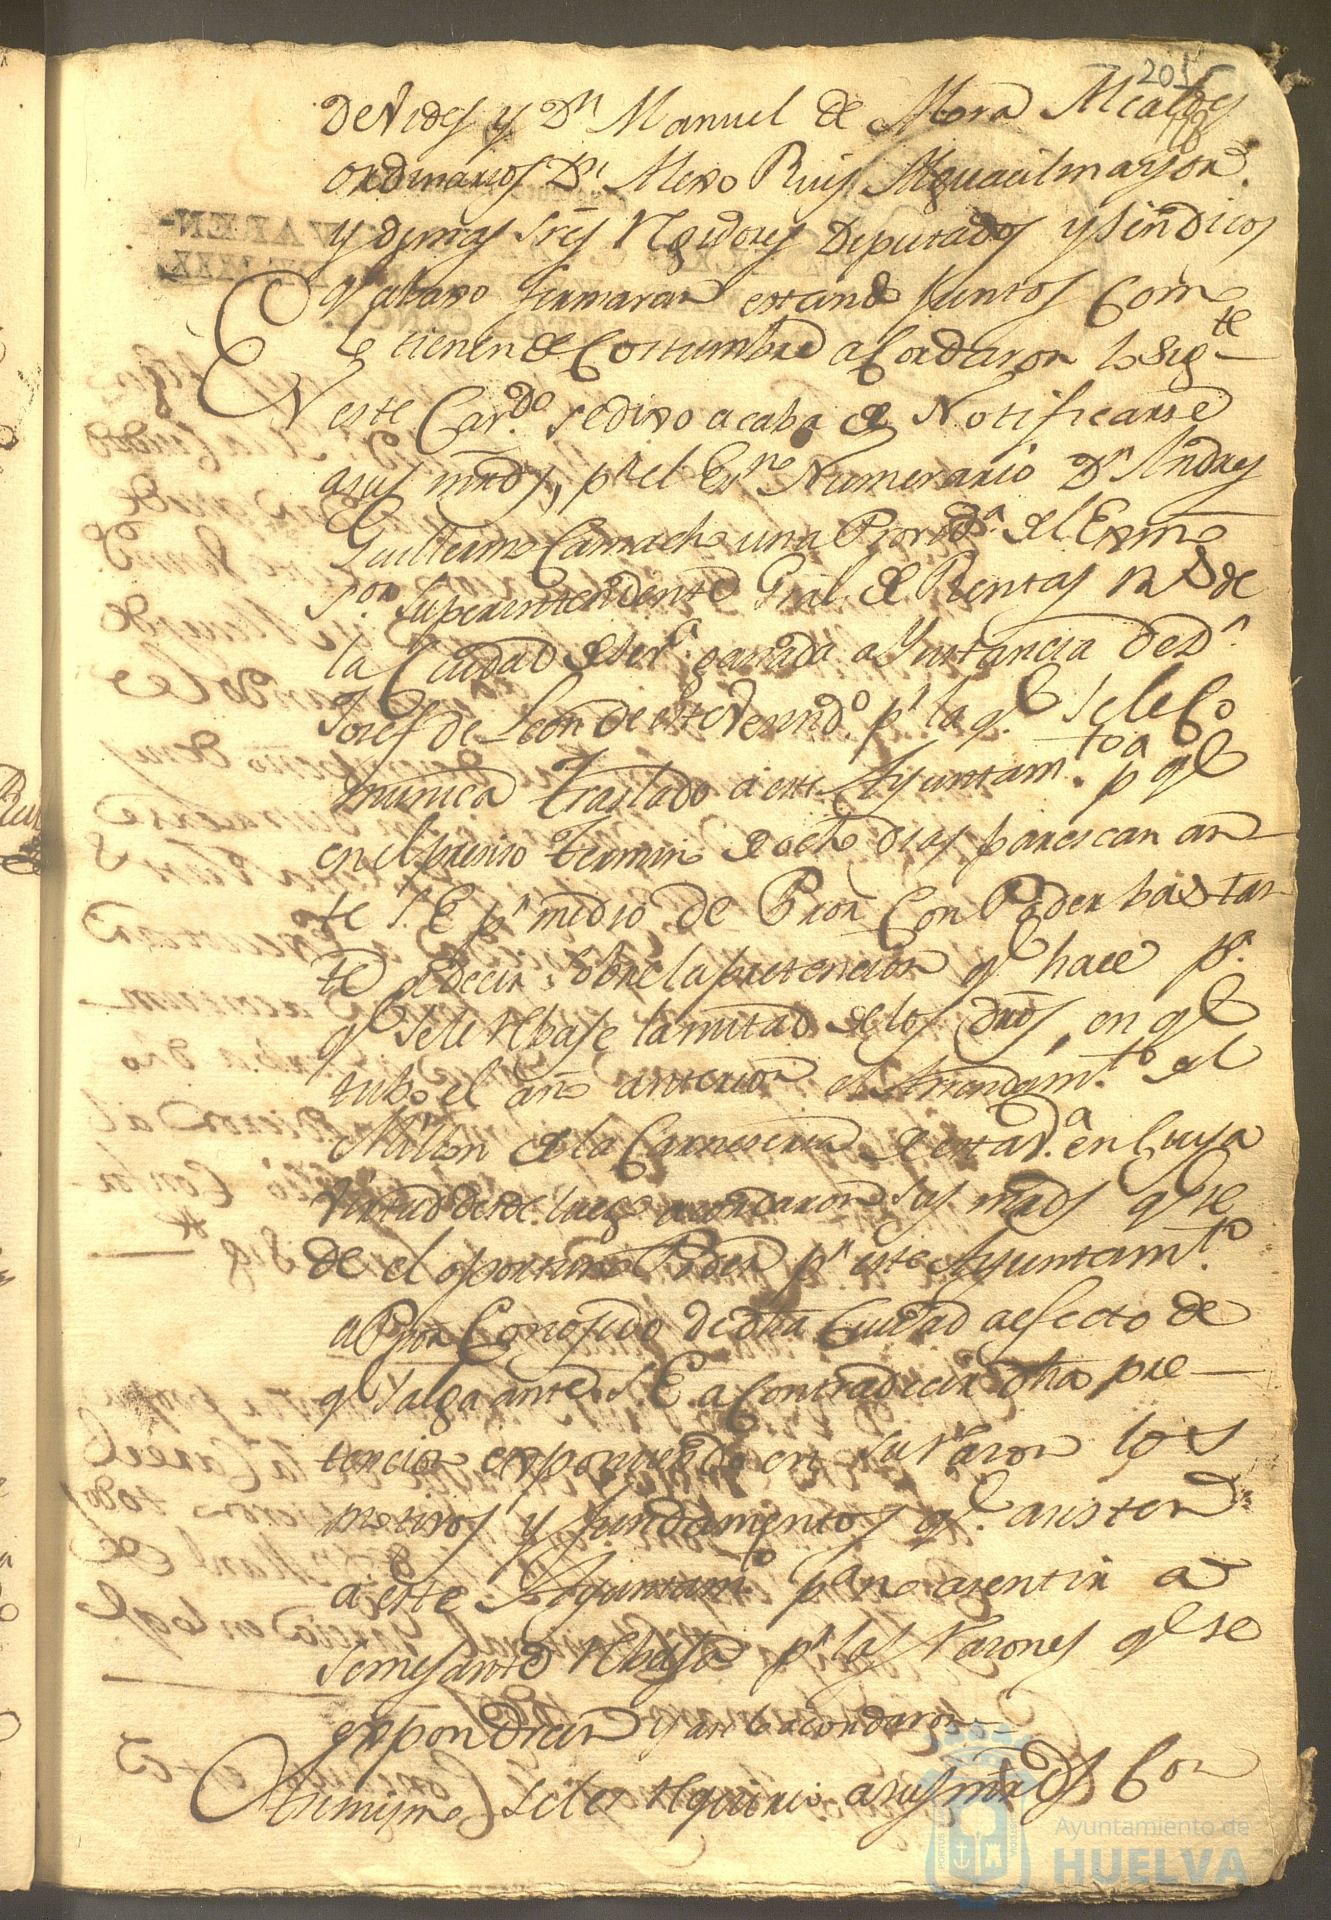 201
y Dn Manuel de Mora Alcaldes
ordinarios Dn Alexo Ruis Alguacil mayor
y demas Sres Rexidores Diputados y Sindicos
q abaxo firmaran estando Juntos Como
lo tienen de Costumbre acordaron lo sigte
En este Cavdo se dixo acaba de Notificarse
a sus mrds, pr el Esno Numerario Dn Andres
Guillermo Camacho una Provda del Exmo
Sor Superintendente Gral de Rentas Rs de
la Ciudad de Seva ganada a Ynstancia de Dn
Josef de Leon de este Vesindo pr la ql Se le Co
munica traslado a este Ayuntamto pa ql
en el presiso termino de ocho dias parescan an
te S.E. pr medio de Pror Con Poder bastan
te a decir sobre la pretencion ql hace pa
ql Se le Rebase la mitad de los dros, en ql
tubo el año anterior el Arrendamto del
Millon de la Carneseria de esta Va en Cuya
Virtud desde luego acordaron sus mrds q se
de el oportuno Poder pr este Ayuntamto
a Pror Conosido de dha Ciudad a efecto de
q salga ante S.E. a Contradecir dha pre
tencion exponiendo en su Razon los
motivos y fundamentos ql asisten
a este Ayuntamto pa no asentir a
Semejante Rebaja pr las Razones ql se
expondran y asi lo acordaron
Asimismo Se les Requirio a sus mrds Con
Ayuntamiento de
HUELVA